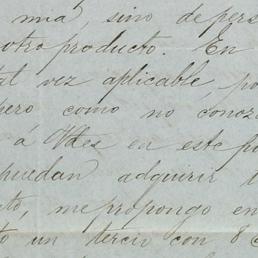 mia, sino de pers
otro producto. En
tal vez aplicable po
pero como no conoz
á Vdes en este p
puedan adquirir
to, me propongo en
to un tercio con 8